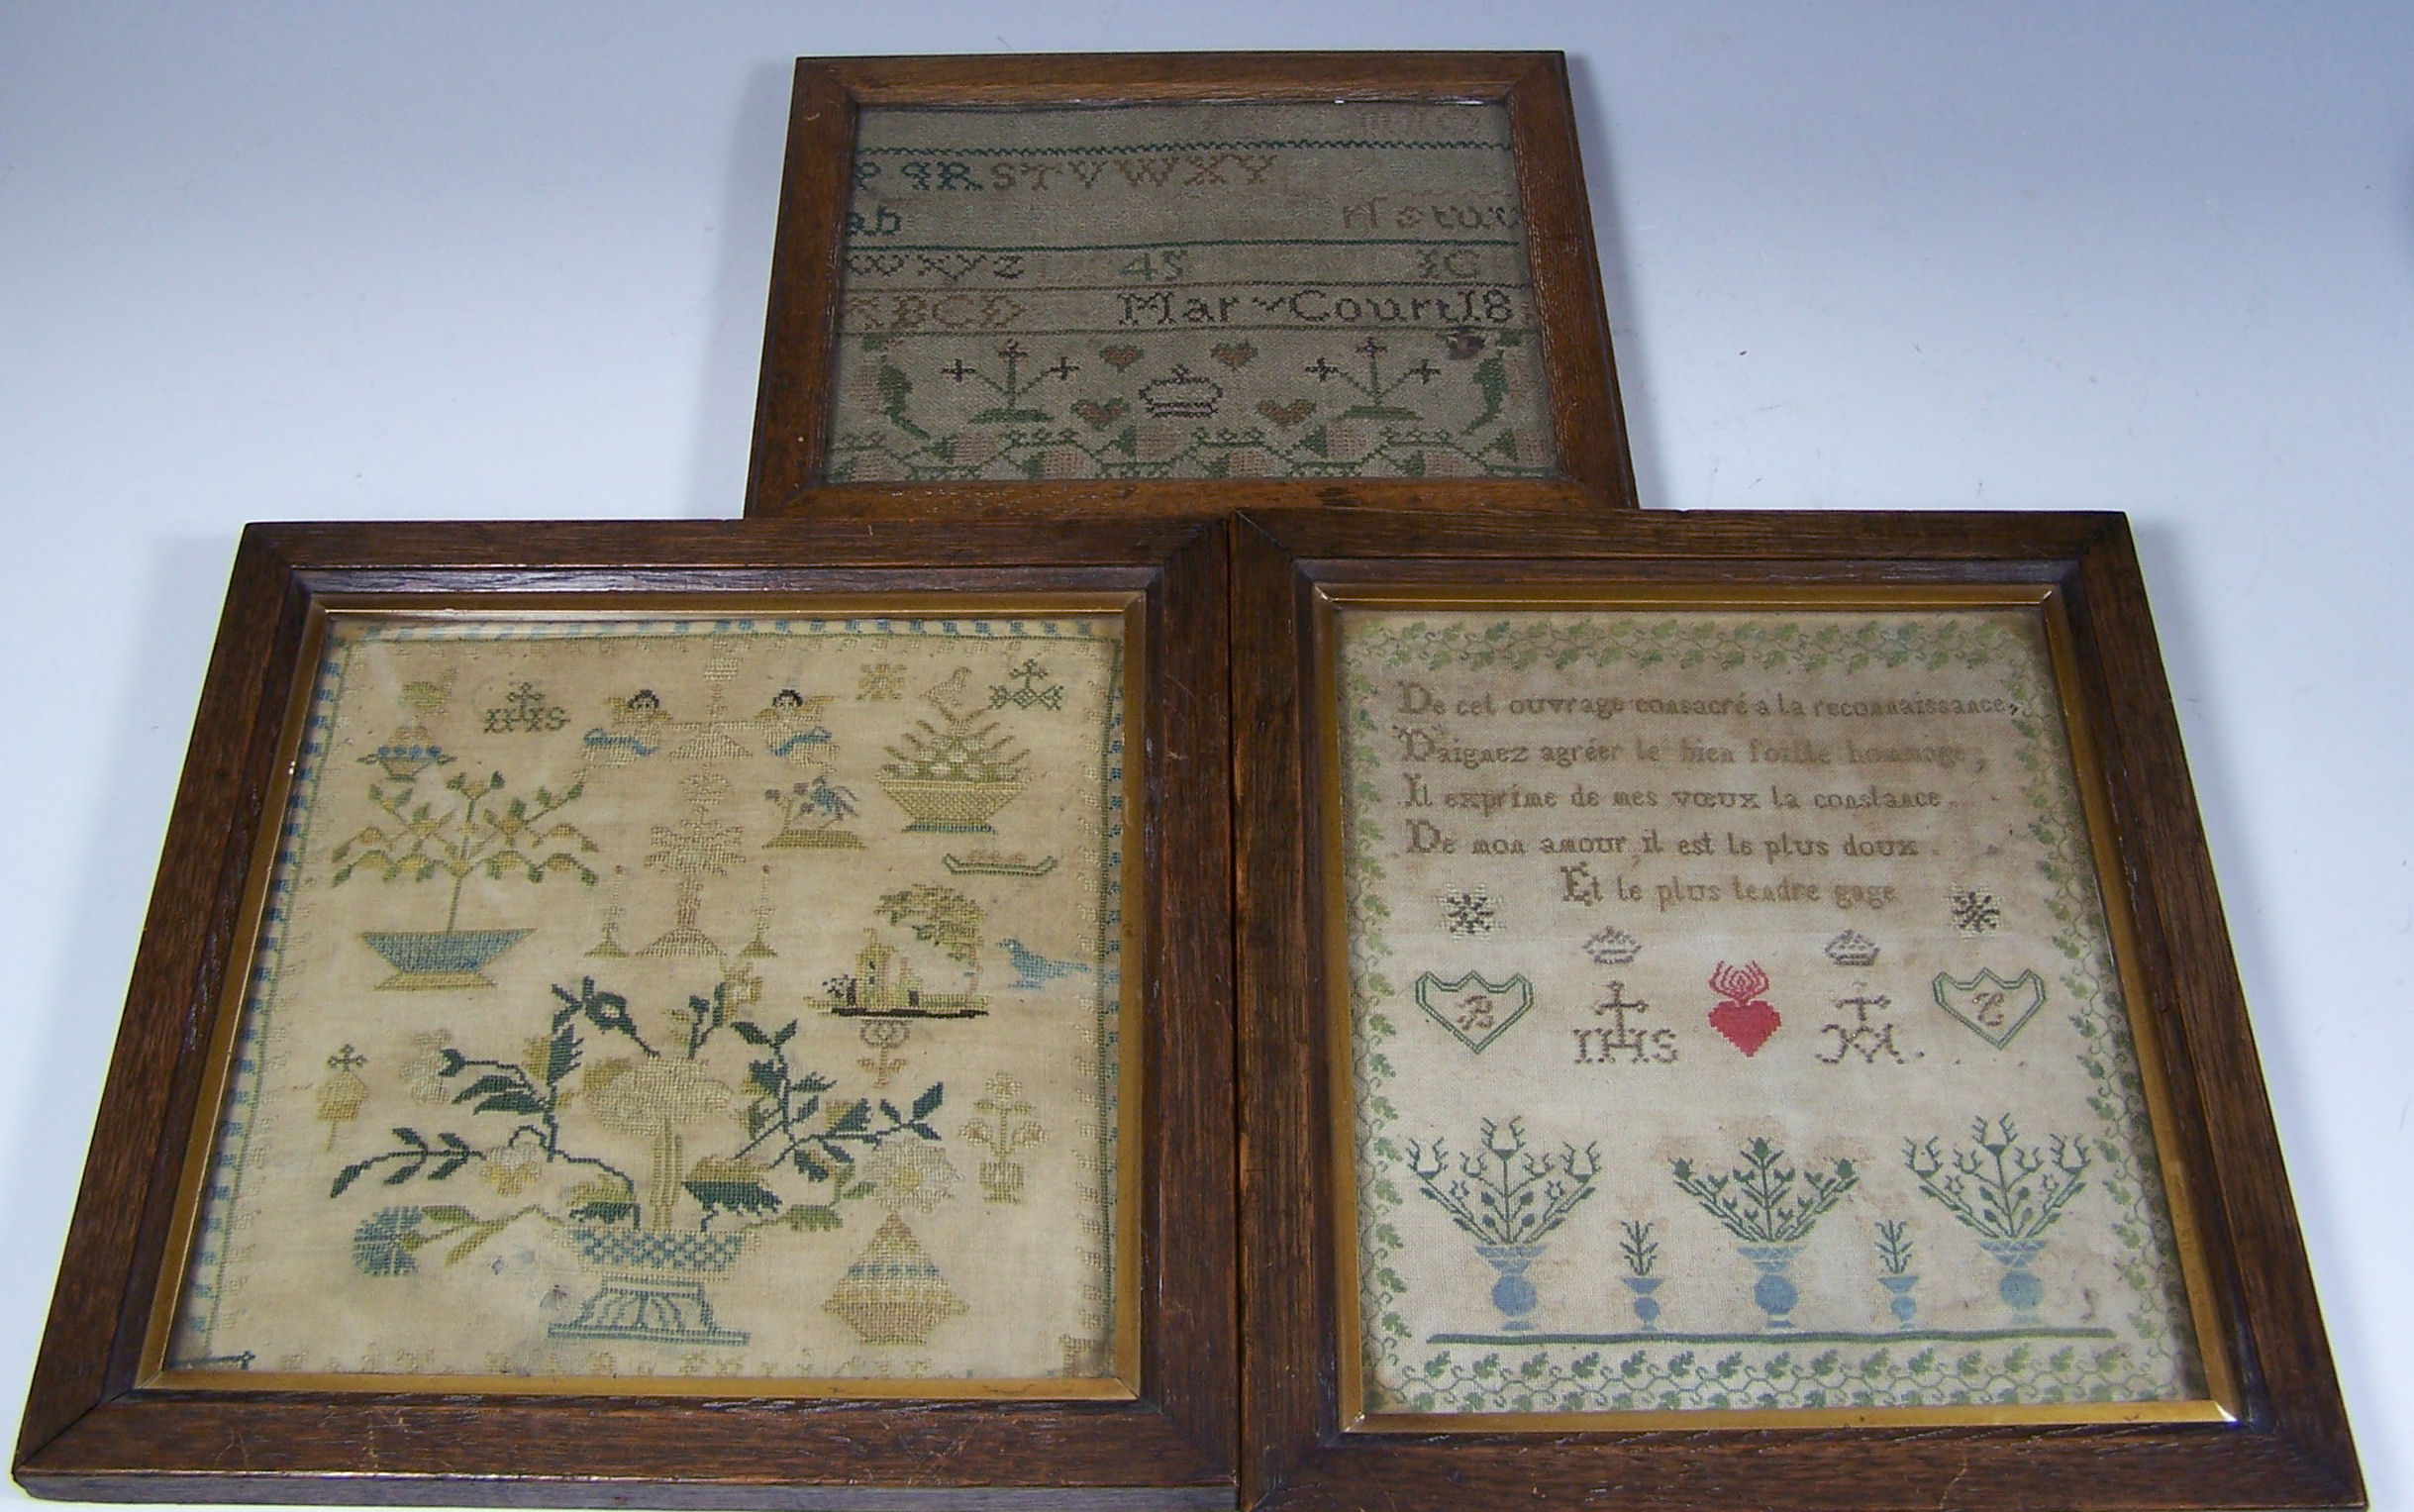 P q R S T V W X Y
ab r ſ s t u v
w x y z 45 G
A B C D Mary Court 18
IHS
De cet ouvrage consacré a la reconnaissance,
Daignez agréer le bien foible hommage,
Il exprime de mes vœux la constance.
De mon amour, il est le plus doux.
Et le plus tendre gage
B IHS MA C